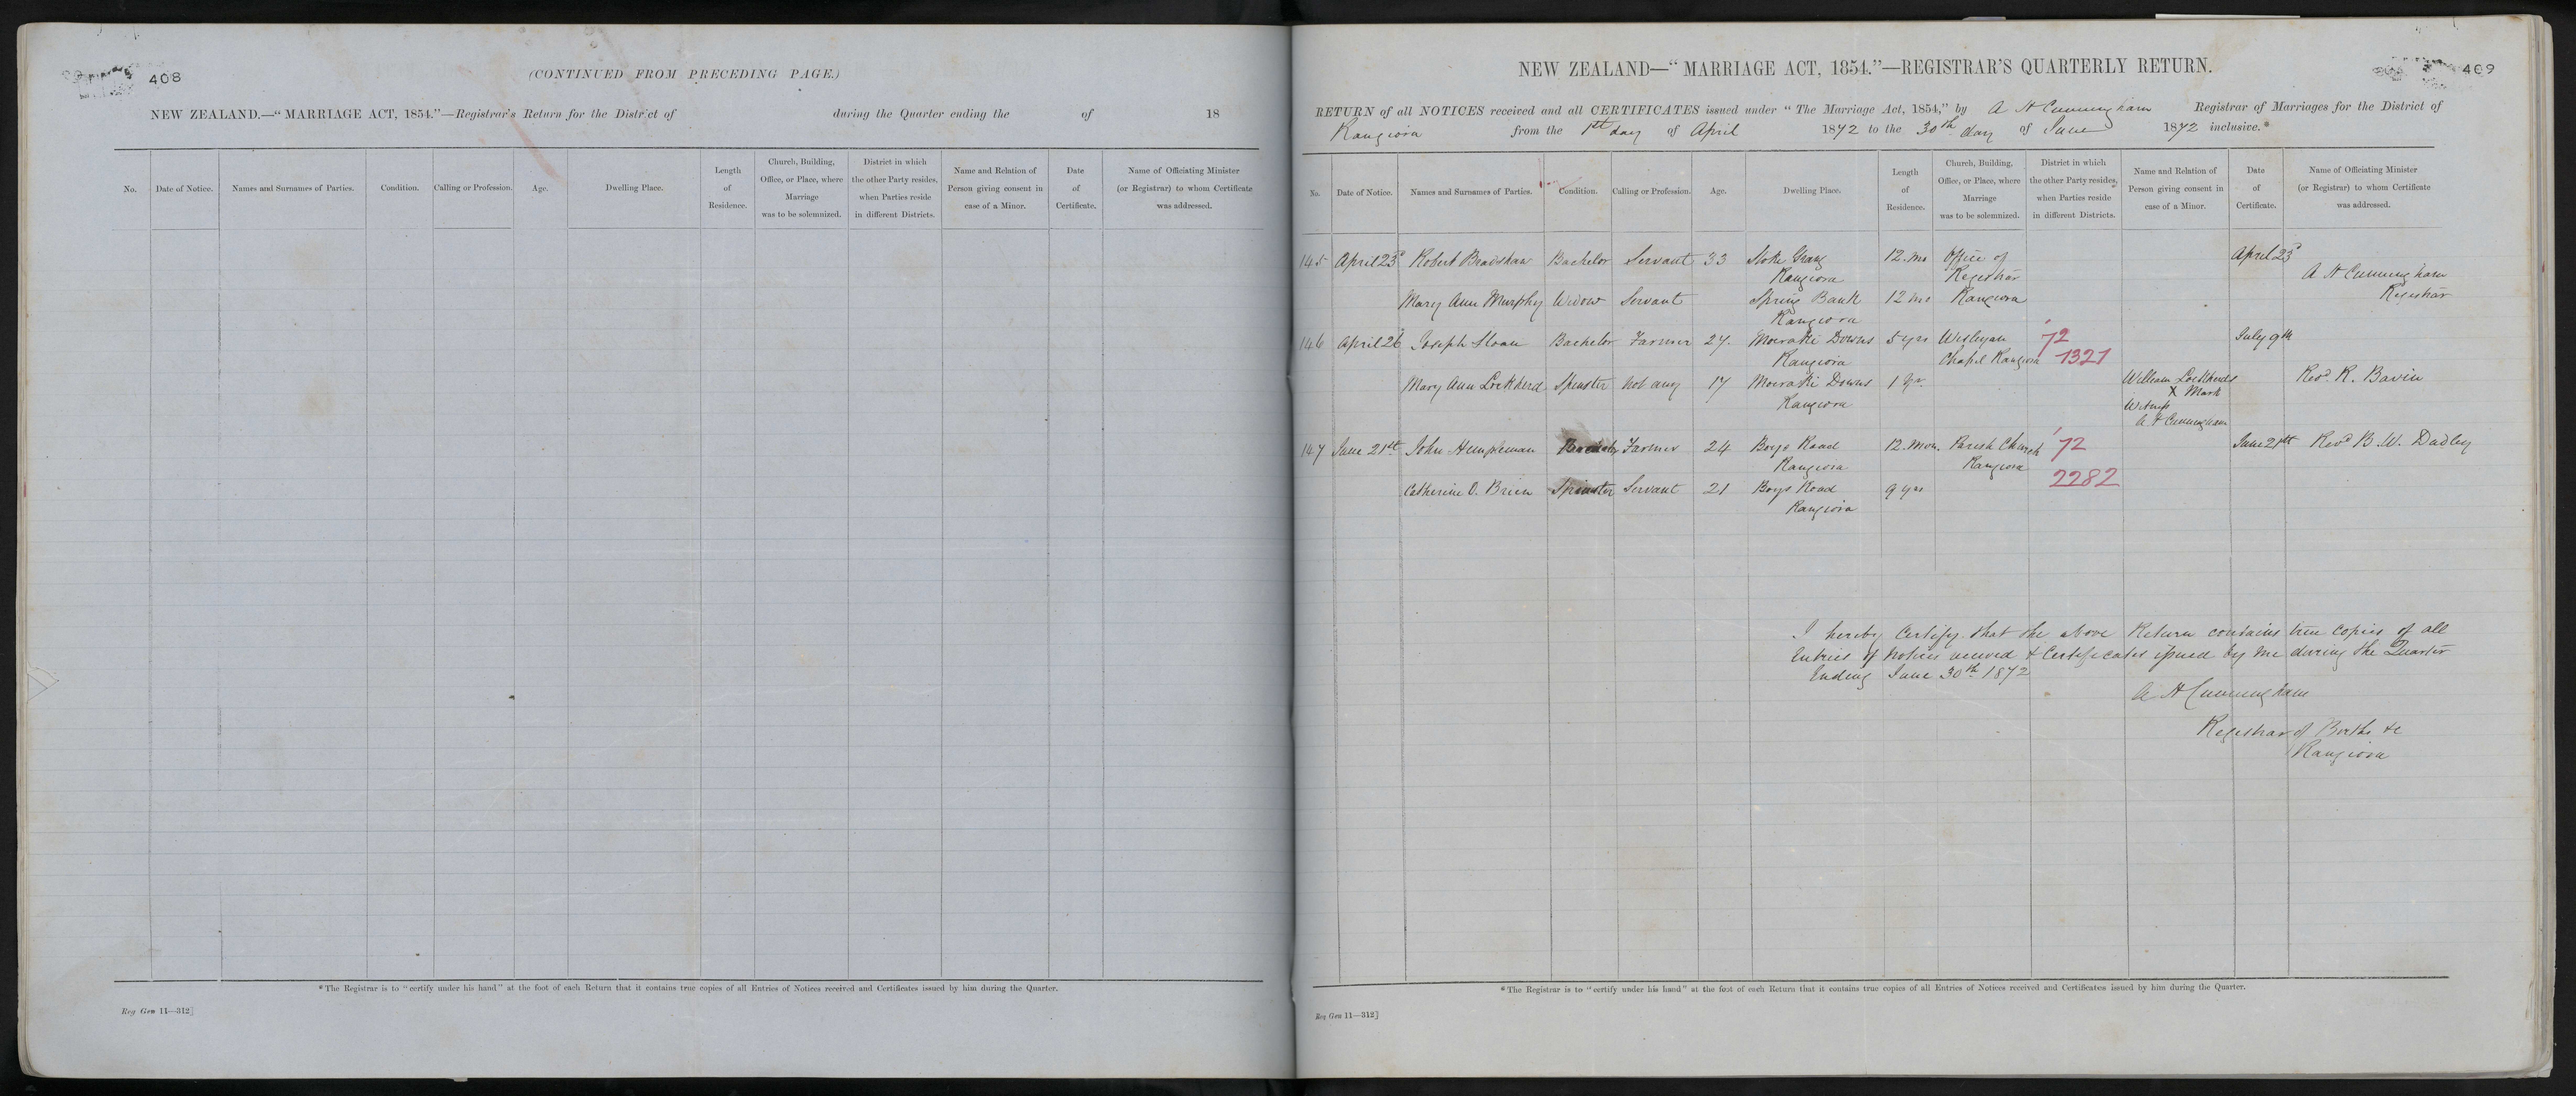 408
(CONTINUED FROM PRECEDING PAGE.)
NEW ZEALAND.—“MARRIAGE ACT, 1854.”—Registrar's Return for the District of during the Quarter ending the of 18
No. Date of Notice. Names and Surnames of Parties. Condition. Calling or Profession. Age. Dwelling Place. Length of Residence. Church, Building, Office, or Place, where Marriage was to be solemnized. District in which the other Party resides, when Parties reside in different Districts. Name and Relation of Person giving consent in case of a Minor. Date of Certificate. Name of Officiating Minister (or Registrar) to whom Certificate was addressed.
*The Registrar is to “certify under his hand” at the foot of each Return that it contains true copies of all Entries of Notices received and Certificates issued by him during the Quarter.
Reg Gen 11—312]
409
NEW ZEALAND—“MARRIAGE ACT, 1854.”—REGISTRAR'S QUARTERLY RETURN.
RETURN of all NOTICES received and all CERTIFICATES issued under “The Marriage Act, 1854,” by A H Cunningham Registrar of Marriages for the District of
Rangiora from the 1st day of April 1872 to the 30th day of June 1872 inclusive.*
No. Date of Notice. Names and Surnames of Parties. Condition. Calling or Profession. Age. Dwelling Place. Length of Residence. Church, Building, Office, or Place, where Marriage was to be solemnized. District in which the other Party resides, when Parties reside in different Districts. Name and Relation of Person giving consent in case of a Minor. Date of Certificate. Name of Officiating Minister (or Registrar) to whom Certificate was addressed.
145 April 23d Robert Bradshaw Bachelor Servant 33 Stoke Grang 12. mo Office of April 23d
Rangiora Registrar A H Cunningham
Mary Ann Murphy Widow Servant Spring Bank 12 mo Rangiora Registrar
Rangiora
146 April 26 Joseph Sloan Bachelor Farmer 27. Moeraki Downs 5 yrs Wesleyan 72 July 9th
Rangiora Chapel Rangiora 1321
Mary Ann Lockherd Spinster not any 17 Moeraki Downs 1 yr. William Lockherds Revd. R. Bavin
Rangiora X Mark
Witness
A H Cunningham
147 June 21st John Hempleman Bachelor Farmer 24 Boys Road 12. Mon. Parish Church 72 June 21st Revd B. W. Dudley
Rangiora Rangiora
2282
Catherine O. Brien Spinster Servant 21 Boys Road 9 yrs
Rangiora
I hereby Certify that the above Return contains true copies of all
Entries of Notices received & Certificates issued by me during the Quarter
Ending June 30th 1872
A H Cunningham
Registrar of Births &c
Rangiora
*The Registrar is to “certify under his hand” at the foot of each Return that it contains true copies of all Entries of Notices received and Certificates issued by him during the Quarter.
Reg Gen 11—312]